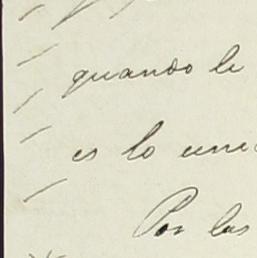 quando le
es lo uni
Por las